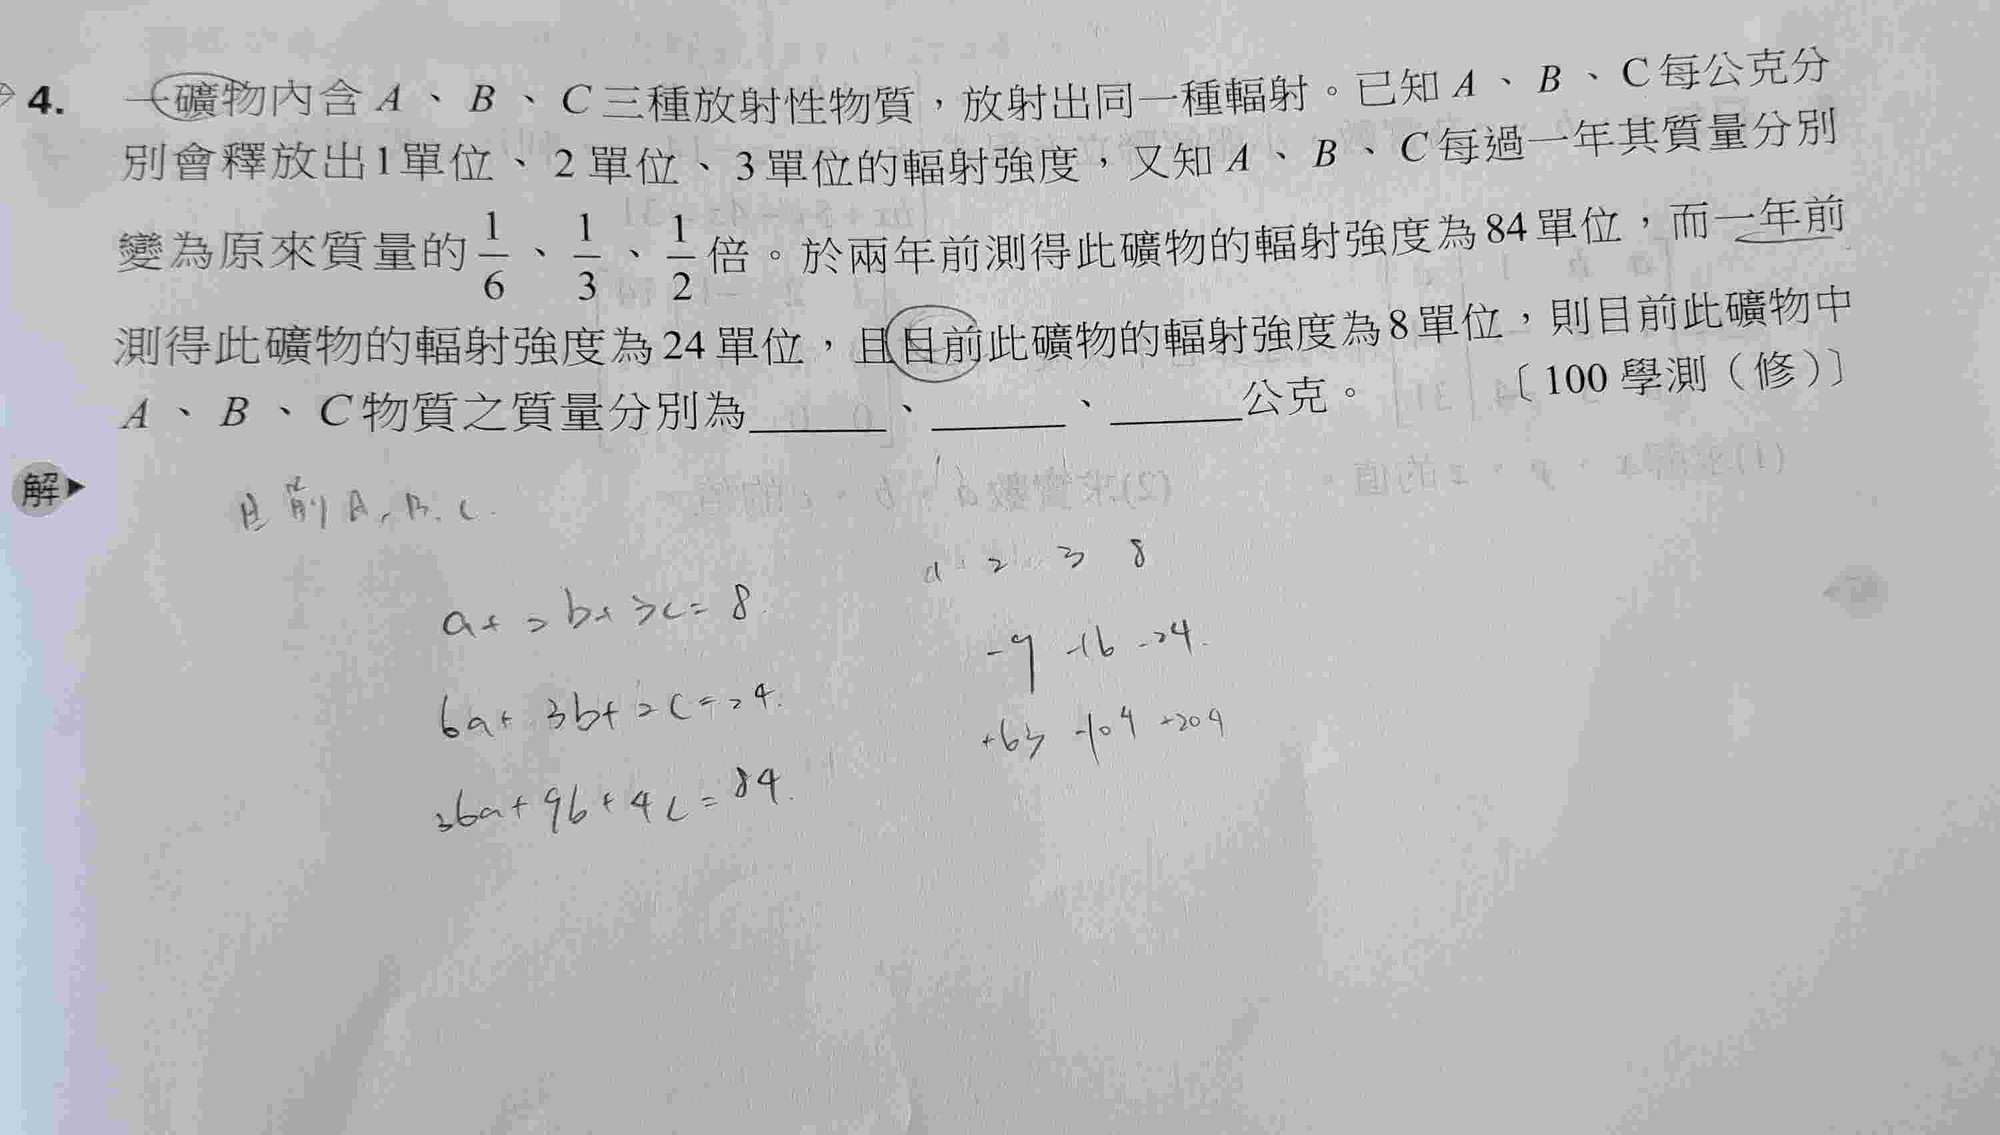 4. 一礦物內含 A、B、C 三種放射性物質，放射出同一種輻射。已知 A、B、C 每公克分
別會釋放出1單位、2單位、3單位的輻射強度，又知 A、B、C 每過一年其質量分別
變為原來質量的 1/6、1/3、1/2 倍。於兩年前測得此礦物的輻射強度為84單位，而一年前
測得此礦物的輻射強度為24單位，且目前此礦物的輻射強度為8單位，則目前此礦物中
A、B、C 物質之質量分別為______、______、______公克。 〔100 學測（修）〕
解
目前 A, B, C.
a+2b+3c=8
6a+3b+2c=24.
36a+9b+4c=84.
2 3 8
-9 -16 -24.
+63 -104 +204